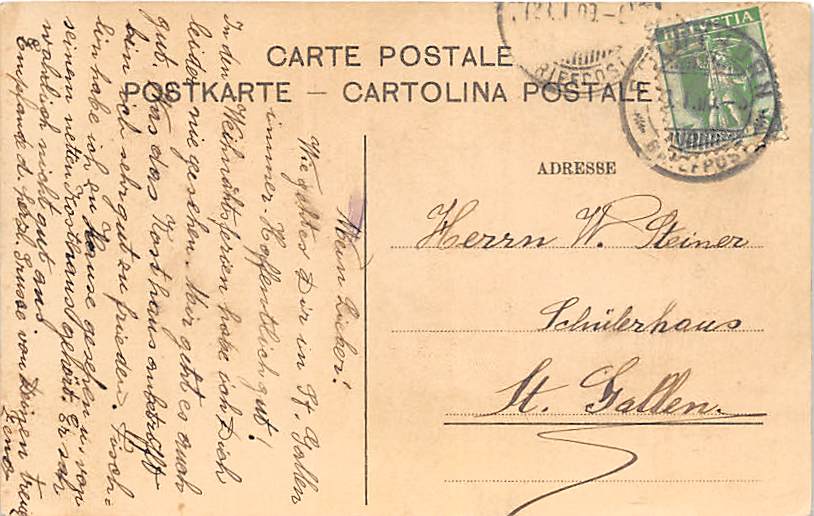 CARTE POSTALE
POSTKARTE – CARTOLINA POSTALE
ADRESSE
Herrn W. Steiner
Schülerhaus
St. Gallen.
HELVETIA
BRIEFPOST
Mein Lieber!
Wie geht es Dir in St. Gallen
immer. Hoffentlich gut!
In den Weihnachtsferien habe ich Dich
leider nie gesehen. Mir geht es auch
gut. Was das Kosthaus anbetrifft
bin ich sehr gut zufrieden. Fisch-
lin habe ich zu Hause gesehen u. von
seinem netten Kosthaus gehört. Er sah
wahrlich nicht gut aus.
Empfange d. herzl. Grüsse von Deinem